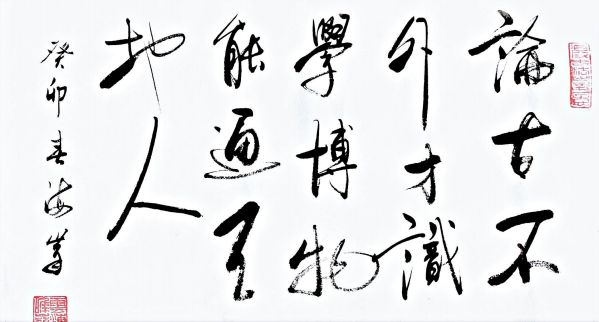 論古不
外才識
學博物
能通天
地人
癸卯春海峯